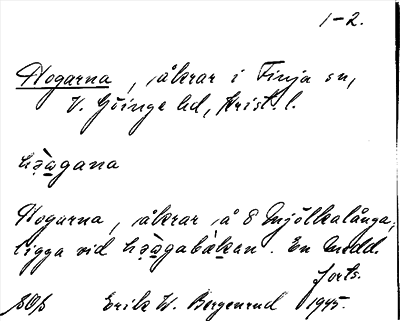 1-2.
Hogarna, åkrar i Finja sn,
V. Göinge hd, Krist. l.
hə̀agana
Hogarna, åkrar å 8 Mjölkalånga,
ligga vid hə̀agabàkan. En Medd.
forts.
Erik W. Bergenrud 1945.